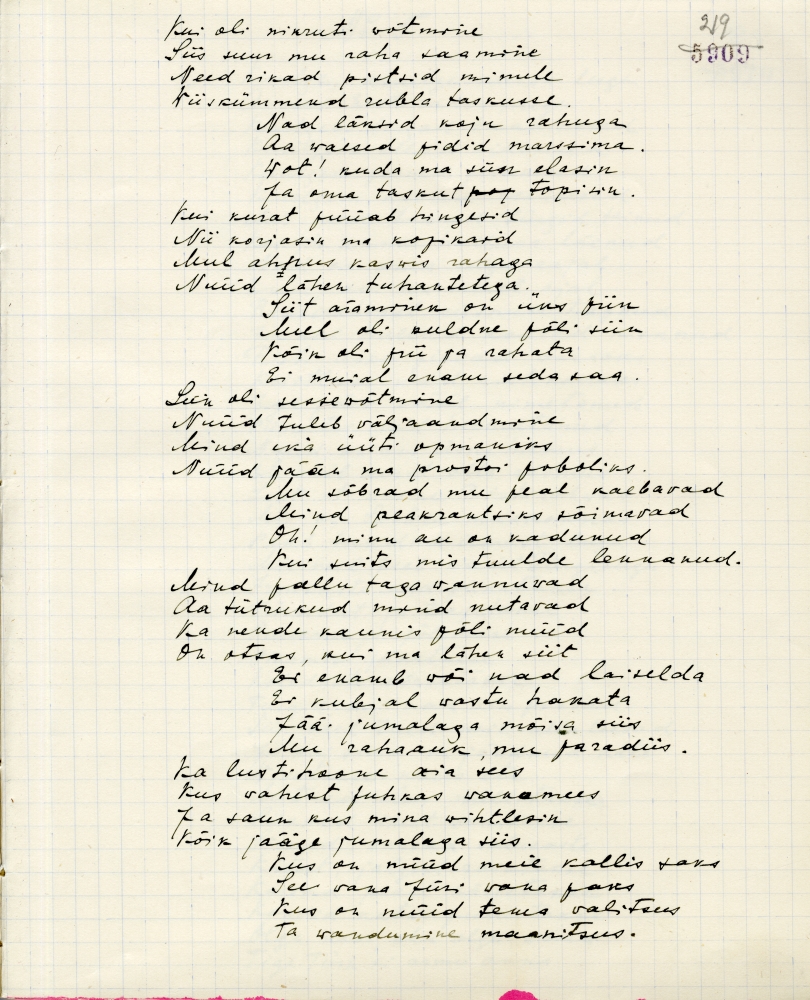 219
5909
Kui oli nikruti wõtmine
Siis suur mu raha saamine
Need rikad pistsid minule
Wiiskümmend rubla taskusse.
Nad läksid koju rahuga
Aa waesed pidid marssima.
Wot! kuda ma siin elasin
Ja oma taskut topisin.
Kui kurat püüab hingesid
Nii korjasin ma kopikaid
Mul ahnus kaswis rahaga
Nüüd lähen tuhandetega.
Siit äraminek on üks piin
Mul oli kuldne põli siin
Kõik oli prii ja rahata
Ei muial enam seda saa.
Siin oli sissewõtmine
Nüüd tuleb väljaandmine
Mind ikka hüüti opmaniks
Nüüd jään ma prostoi poboliks.
Mu sõbrad mu peal kaebavad
Mind peakrantsiks sõimavad
Oh! minu au on kadunud
Kui suits mis tuulde lennanud.
Mind pallu taga wannuwad
Aa tütrukud mind nutavad
Ka nende kaunis põli nüüd
On otsas, kui ma lähen siit
Ei enamb wõi nad laiselda
Ei kubjal wastu hakata
Jää jumalaga mõisa siis
Mu rahaauk, mu paradiis.
Ka lustihoone aia sees
Kus wahest puhkas wanamees
Ja saun kus mina wihtlesin
Kõik jääge jumalaga siis.
Kus on nüüd meie kallis saks
See wana Jüri wana paks
Kus on nüüd tema valitsus
Ta wandumine maanitsus.